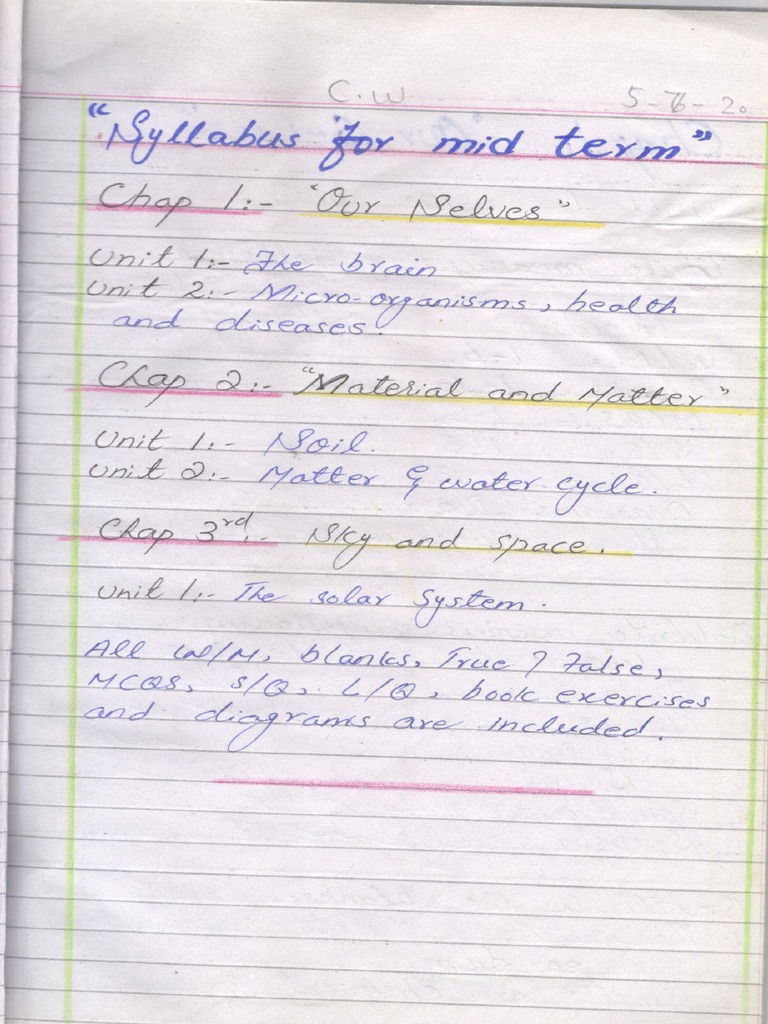 C.W 5-6-20
"Syllabus for mid term"
Chap 1:- "Our Selves"
Unit 1:- The brain
Unit 2:- Micro-organisms, health
and diseases.
Chap 2:- "Material and Matter"
Unit 1:- Soil.
Unit 2:- Matter & water cycle.
Chap 3rd:- Sky and space.
Unit 1:- The solar System.
All W/M, blanks, True ? False,
MCQS, S/Q, L/Q, book exercises
and diagrams are included.